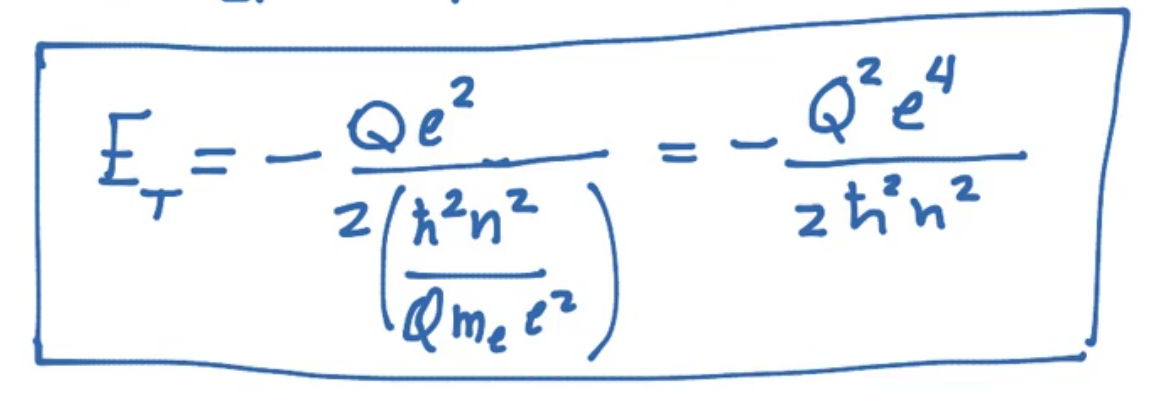 E_T = - Qe² / 2(ħ²n² / Qmₑe²) = - Q²e⁴ / 2ħ²n²